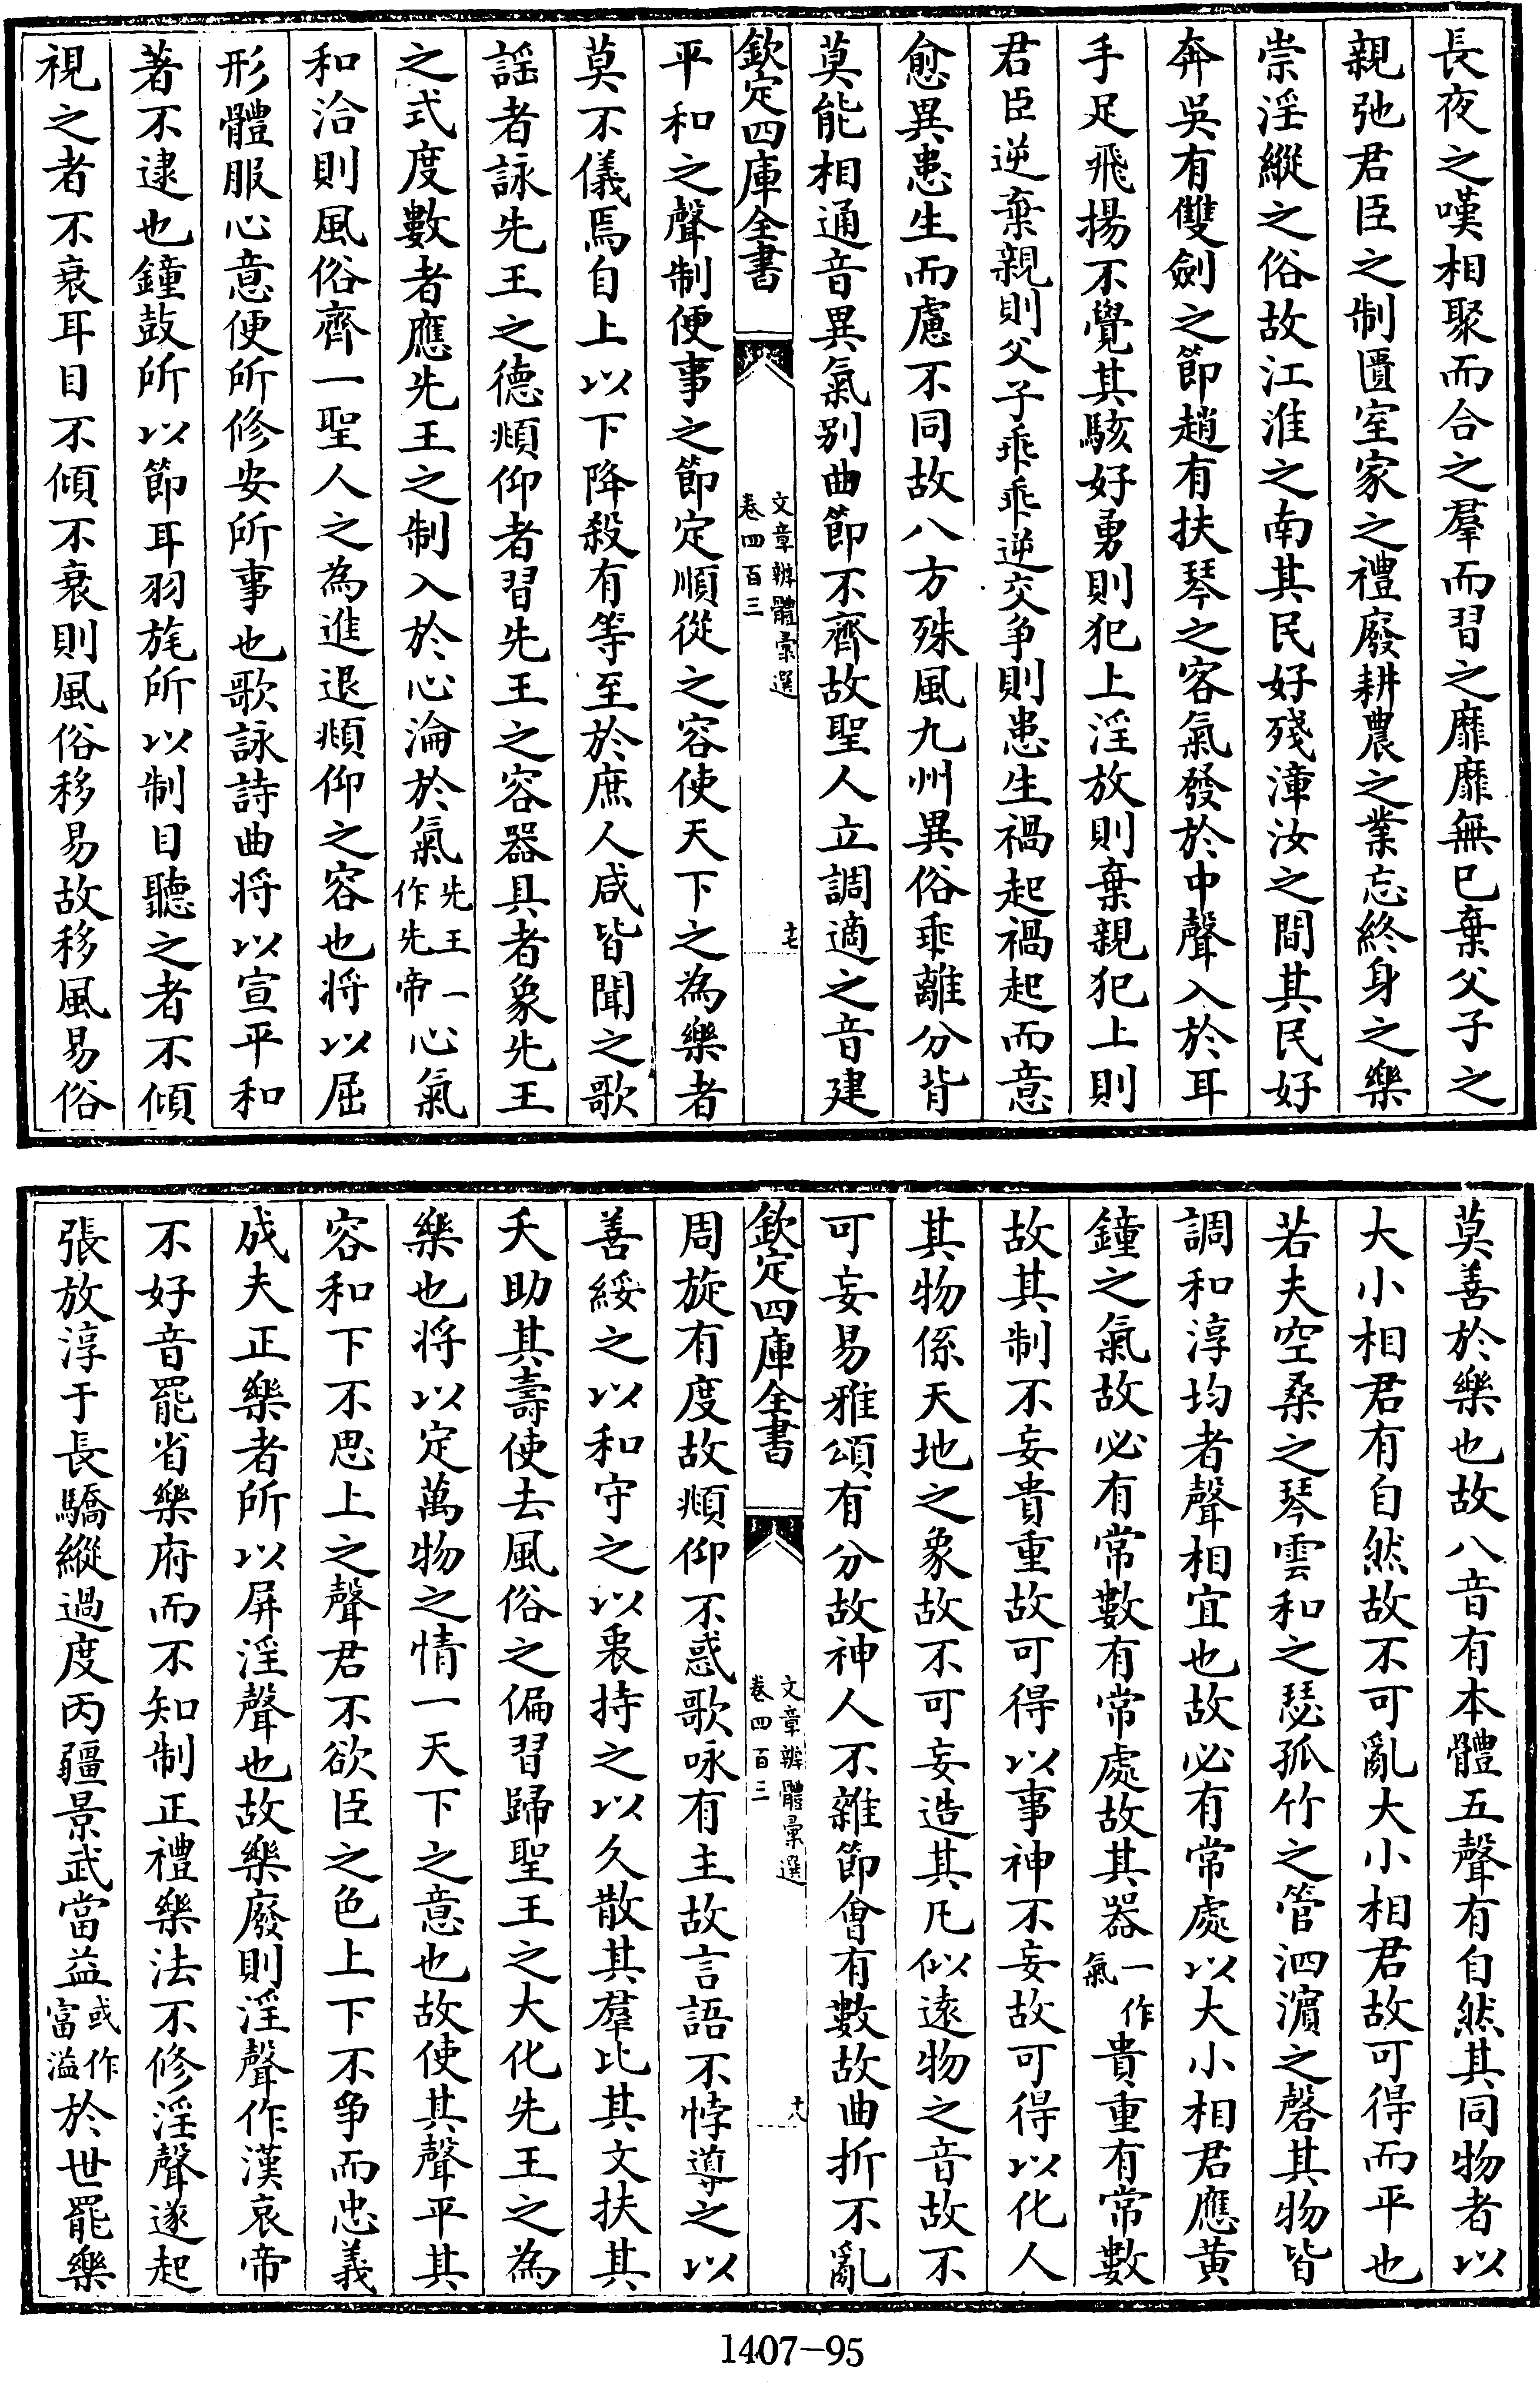 長夜之嘆相聚而合之羣而習之靡靡無已棄父子之
親弛君臣之制匱室家之禮廢耕農之業忘終身之樂
崇淫縱之俗故江淮之南其民好殘漳汝之間其民好
奔吳有雙劍之節趙有扶琴之客氣發於中聲入於耳
手足飛揚不覺其駭好勇則犯上淫放則棄親犯上則
君臣逆棄親則父子乖乖逆交爭則患生禍起禍起而意
愈異患生而慮不同故八方殊風九州異俗乖離分背
莫能相通音異氣别曲節不齊故聖人立調適之音建
欽定四庫全書
文章辨體彙選
卷四百三
十七
平和之聲制便事之節定順從之容使天下之為樂者
莫不儀焉自上以下降殺有等至於庶人咸皆聞之歌
謡者詠先王之德頫仰者習先王之容器具者象先王
之式度數者應先王之制入於心淪於氣先王一作先帝心氣
和洽則風俗齊一聖人之為進退頫仰之容也将以屈
形體服心意便所修安所事也歌詠詩曲将以宣平和
著不逮也鐘鼓所以節耳羽旄所以制目聽之者不傾
視之者不衰耳目不傾不衰則風俗移易故移風易俗
莫善於樂也故八音有本體五聲有自然其同物者以
大小相君有自然故不可亂大小相君故可得而平也
若夫空桑之琴雲和之瑟孤竹之管泗濵之磬其物皆
調和淳均者聲相宜也故必有常處以大小相君應黄
鐘之氣故必有常數有常處故其器一作氣貴重有常數
故其制不妄貴重故可得以事神不妄故可得以化人
其物係天地之象故不可妄造其凡似逺物之音故不
可妄易雅頌有分故神人不雜節會有數故曲折不亂
欽定四庫全書
文章辨體彙選
卷四百三
十八
周旋有度故頫仰不惑歌咏有主故言語不悖導之以
善綏之以和守之以衷持之以久散其羣比其文扶其
夭助其壽使去風俗之偏習歸聖王之大化先王之為
樂也将以定萬物之情一天下之意也故使其聲平其
容和下不思上之聲君不欲臣之色上下不爭而忠義
成夫正樂者所以屏淫聲也故樂廢則淫聲作漢哀帝
不好音罷省樂府而不知制正禮樂法不修淫聲遂起
張放淳于長驕縱過度丙疆景武當益或作富溢於世罷樂
1407-95